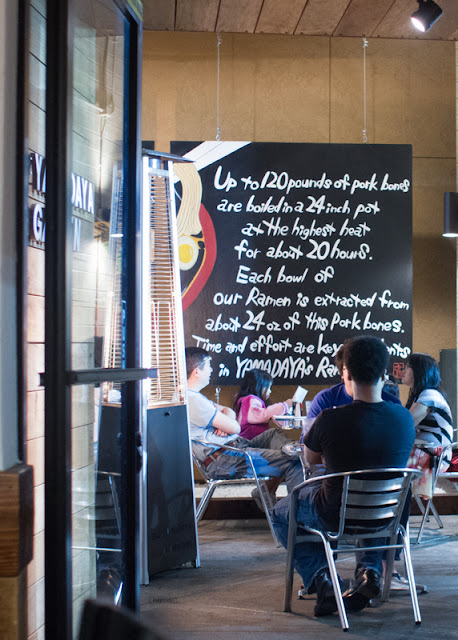 Up to 120 pounds of pork bones
are boiled in a 24 inch pot
at the highest heat
for about 20 hours.
Each bowl of
our Ramen is extracted from
about 24 oz of this Pork bones.
Time and effort are key
in YAMADAYA's